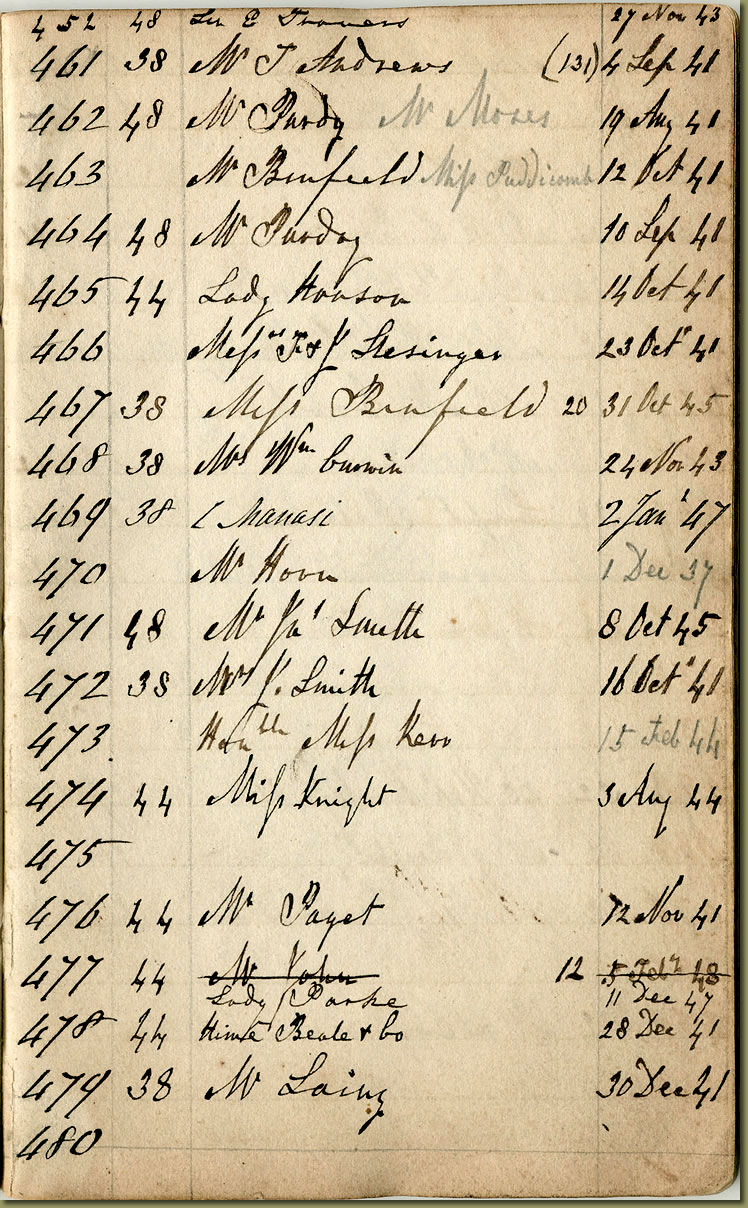 452 48 27 Nov 43
461 38 Mr J Andrews (131) 4 Sep 41
462 48 Mr Purdy Mr Moses 19 Aug 41
463 Mr Binfield Miss Puddicomb 12 Oct 41
464 48 Mr Purday 10 Sep 41
465 44 Lady 14 Oct 41
466 Messrs & J Slesinger 23 Octr 41
467 38 Miss Binfield 20 31 Oct 45
468 38 Mrs Wm Curwin 24 Nov 43
469 38 Manasi 2 Jany 47
470 Mr Horn 1 Dec 37
471 48 Mr Jas Smith 8 Oct 45
472 38 Mrs J. Smith 16 Octr 41
473 Honble Miss Kerr 15 Feb 44
474 44 Miss Knight 3 Aug 44
475
476 44 Mr Paget 12 Nov 41
477 44 Mr John 12 5 Feby 48
Lady Parke 11 Dec 47
478 44 Beale & Co 28 Dec 41
479 38 Mr Laing 30 Dec 41
480